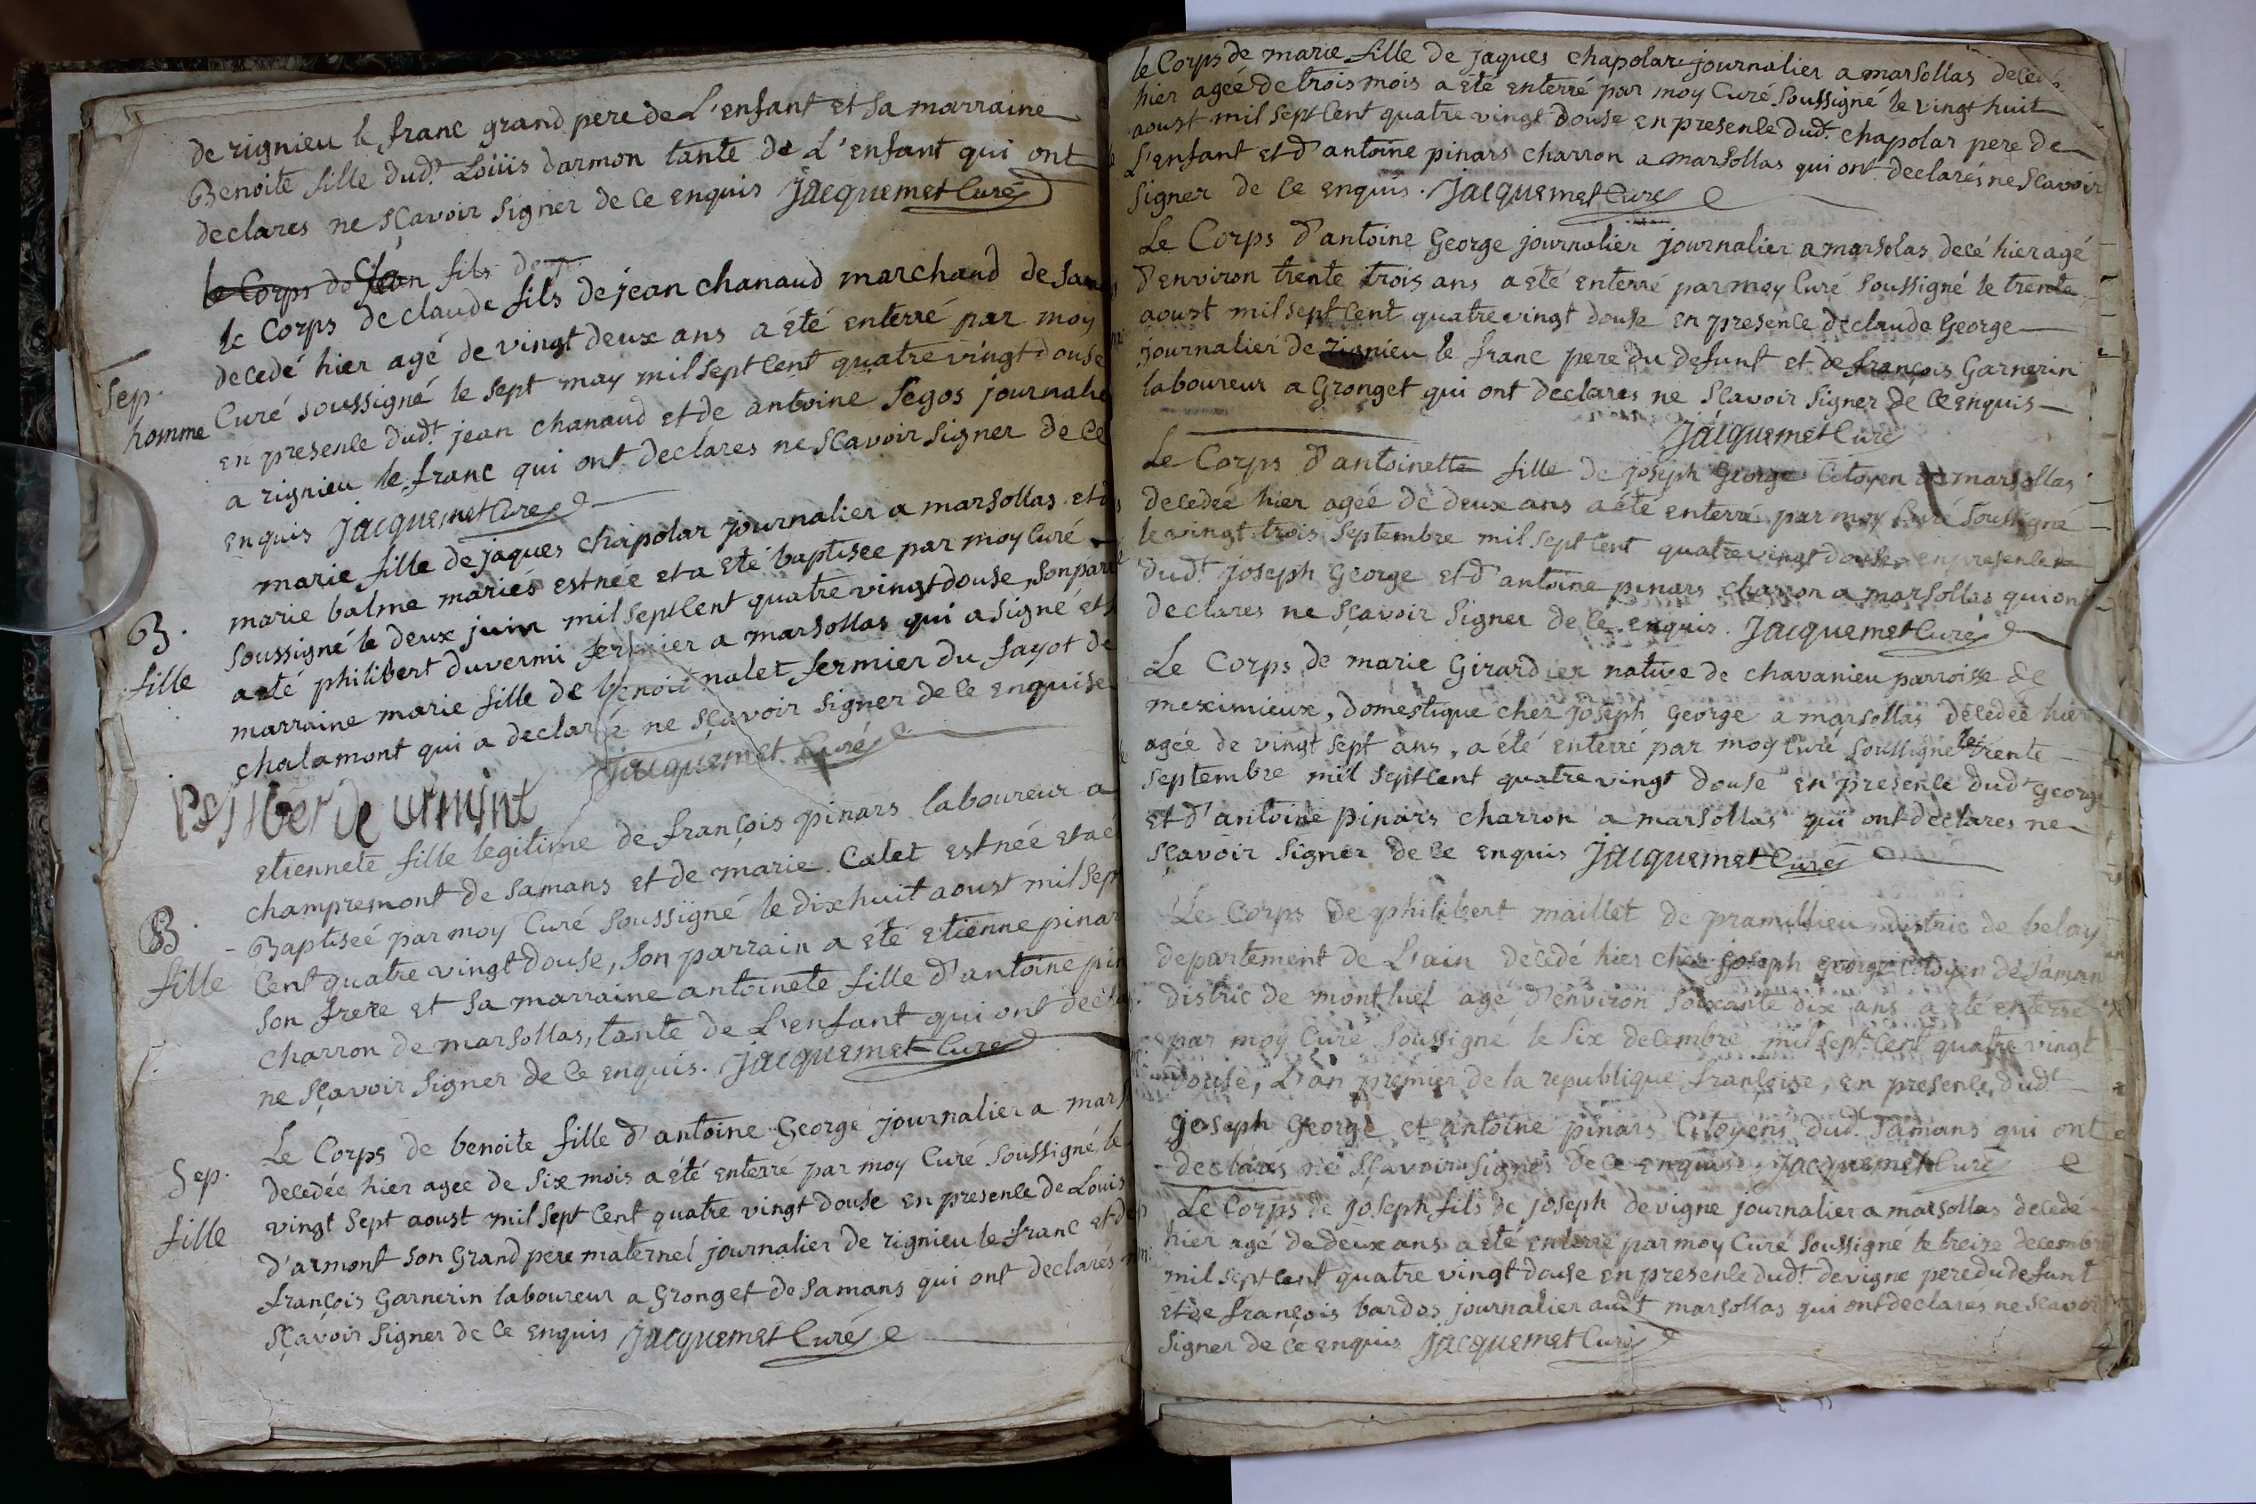 de rignieu le franc grand pere de L'enfant et sa marraine
Benoite fille dud.t Loüis darmon tante de L'enfant qui ont
declares ne sçavoir signer de ce enquis Jacquemet Curé
le Corps de Jean fils de
le Corps de claude fils de jean chanaud marchand de
decedé hier agé de vingt deux ans a été enterré par moy
Sep. Curé soussigné le sept may mil sept cent quatre vingt douse
homme en presence dud.t jean chanaud et de antoine Segos
a rignieu le franc qui ont declares ne sçavoir signer de ce
enquis Jacquemet Curé
marie fille de jaques chapolar journalier a marsollas et
marie balme mariés est née et a eté baptisée par moy Curé
B. soussigné le deux juin mil sept cent quatre vingt douse, son
fille a eté philibert duvermi fermier a marsollas qui a signé et
marraine marie fille de benoit nalet fermier du fayot de
chalamont qui a declaré ne sçavoir signer de ce enquise
Jacquemet Curé
etiennete fille légitime de françois pinars laboureur a
champremont de samans et de marie Calet est née et a
B. Baptiseé par moy Curé soussigné le dixhuit aoust mil sept
fille Cent quatre vingt douse, son parrain a été etienne
son frere et sa marraine antoinete fille d'antoine
charron de marsollas, tante de L'enfant qui ont
ne sçavoir signer de ce enquis. Jacquemet Curé
Le Corps de benoite fille d'antoine George journalier a
Sep. decedée hier agee de six mois a été enterré par moy Curé soussigné le
fille vingt sept aoust mil sept cent quatre vingt douse en presence de Louis
d'armont son Grand pere maternel journalier de rignieu le franc et de
françois Garnerin laboureur a Gronget de samans qui ont declarés
sçavoir signer de ce enquis Jacquemet Curé
le Corps de marie fille de jaques chapolar journalier a marsollas
hier agée de trois mois a eté enterré par moy Curé soussigné le vingt huit
aoust mil sept cent quatre vingt douse en presence dud.t chapolar pere de
L'enfant et d'antoine pinars charron a marsollas qui ont declarés ne sçavoir
signer de ce enquis. Jacquemet Curé
Le Corps d'antoine George journalier journalier a marsolas decé hier agé
d'environ trente trois ans a été enterré par moy Curé soussigné le trente
aoust mil sept cent quatre vingt douse en presence de claude George
journalier de rignieu le franc pere du defunt et de françois Garnerin
laboureur a Gronget qui ont declares ne sçavoir signer de ce enquis
Jacquemet Curé
Le Corps d'antoinette fille de joseph George Citoyen de marsollas
decedeé hier agée de deux ans a été enterré par moy Curé soussigné
le vingt trois septembre mil sept cent quatre vingt douse en presence
dud.t joseph George et d'antoine pinars charron a marsollas qui ont
declares ne sçavoir signer de ce enquis. Jacquemet Curé
Le Corps de marie Girardier native de chavanieu parroisse de
meximieux, domestique chez joseph George a marsollas décedeé hier
agée de vingt sept ans, a été enterré par moy Curé soussigné le trente
septembre mil sept cent quatre vingt douse en presence dud.t George
et d'antoine pinars charron a marsollas qui ont declares ne
sçavoir signer de ce enquis Jacquemet Curé
Le Corps de philibert maillet de pramillieu distric de belay
departement de L'ain décédé hier chez joseph george Citoyen de Saman
distric de montluel agé d'environ soixante dix ans a eté enterré
par moy Curé soussigné le six decembre mil sept cent quatre vingt
douse, L'an premier de la republique françoise, en presence dud.t
joseph George et antoine pinars Citoyens dud.t Samans qui ont
declarés ne sçavoir signer de ce enquise, Jacquemet Curé
Le Corps de joseph fils de joseph devigne journalier a marsollas decedé
hier agé de deux ans a eté enterré par moy Curé soussigné le treise decembre
mil sept cent quatre vingt douse en presence dud.t devigne pere du defunt
et de françois bardos journalier aud.t marsollas qui ont declarés ne sçavoir
signer de ce enquis Jacquemet Curé